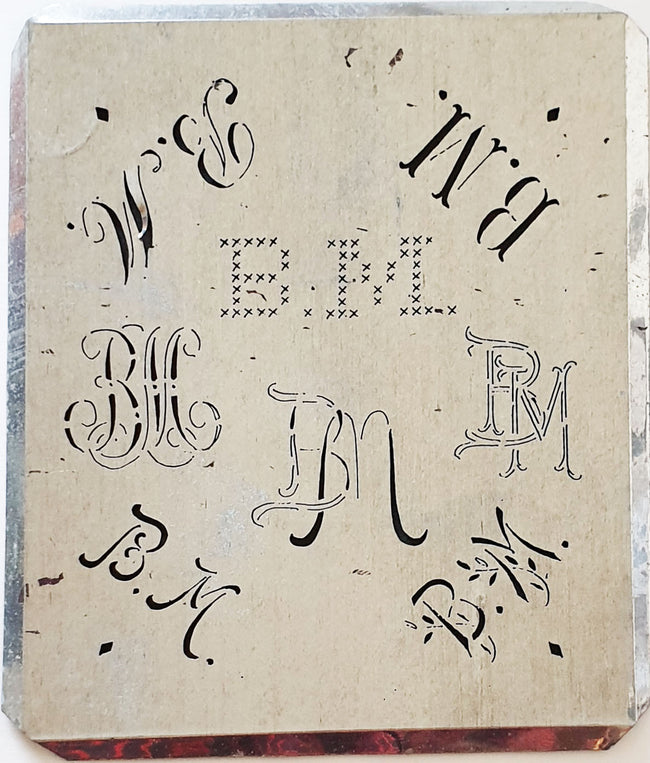 B.M.
B.M.
B.M.
BM
BM
BM
B.M.
B.M.